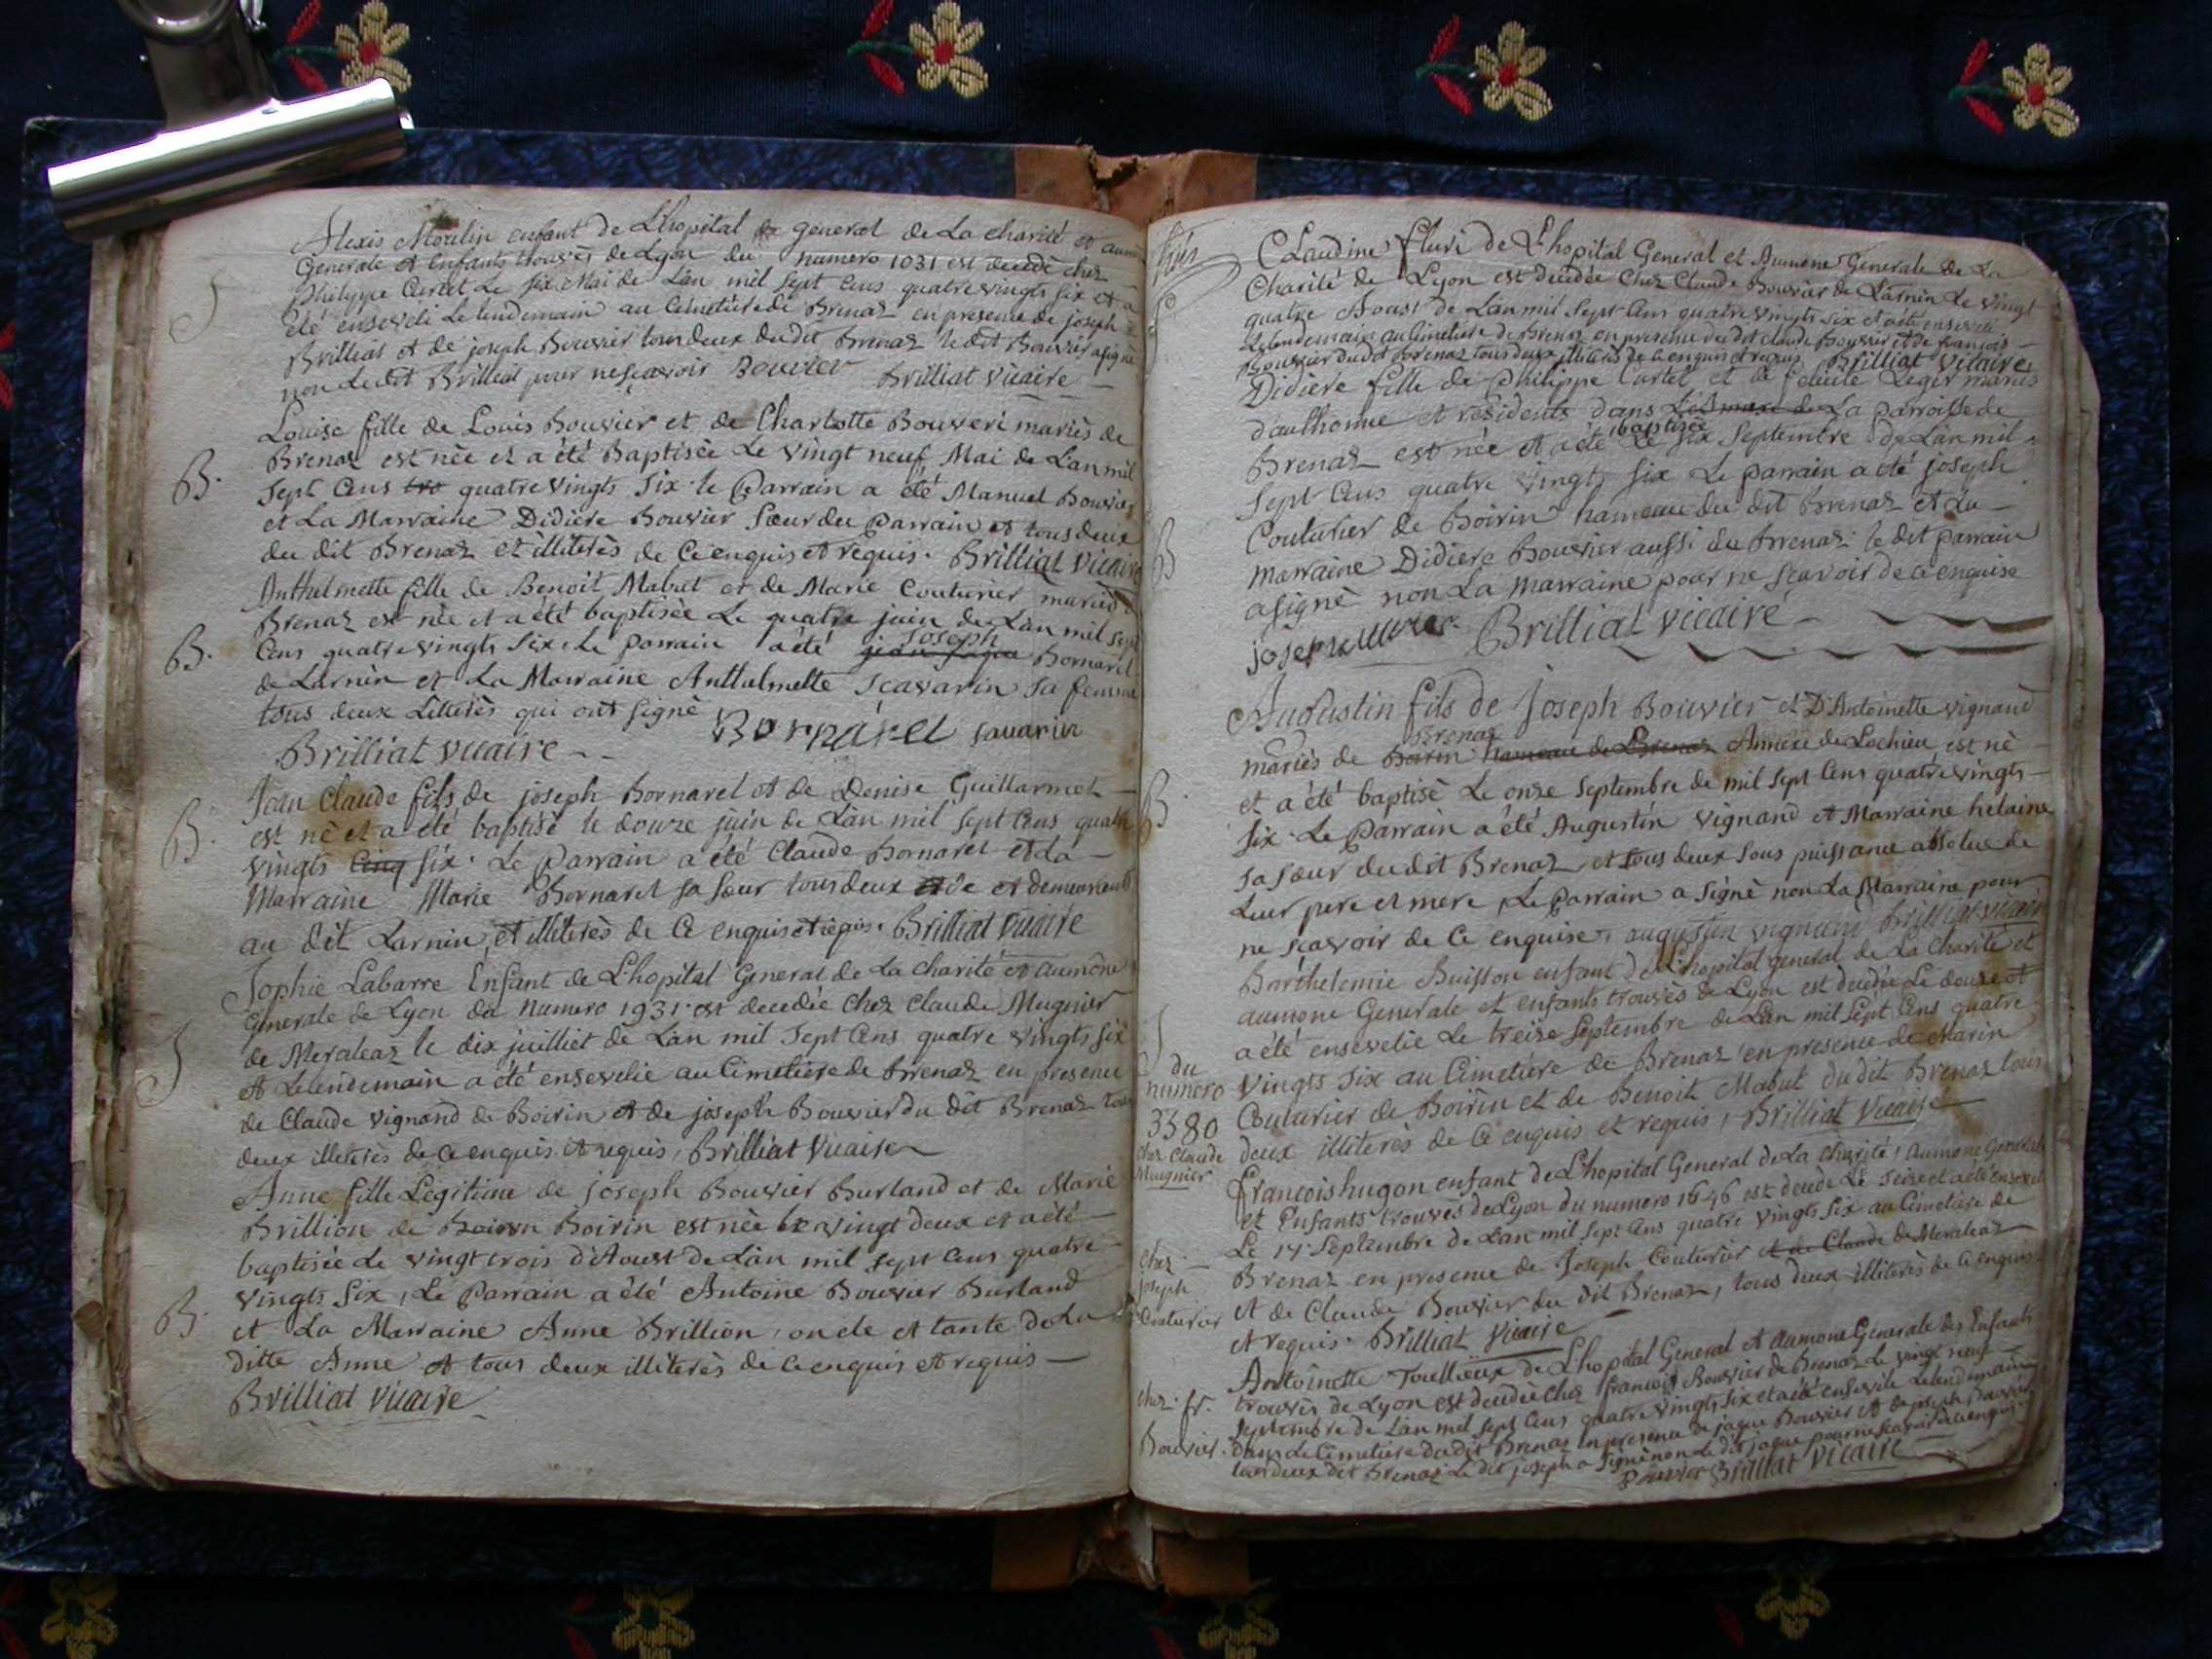 Alexis Moulin enfant de L'hopital general de La charité et aum
Generale et enfants trouvés de Lyon du numero 1031 est decedé chez
philippe Curtet Le six Mai de L'an mil sept Cens quatre vingts six et a
été enseveli Le lendemain au Cimetiere de Brenaz en presence de joseph
Brilliat et de joseph Bouvier tous deux du dit Brenaz le dit Bouvier a signé
non Le dit Brilliat pour ne sçavoir Bouvier Brilliat vicaire
Louise fille de Louis Bouvier et de Charlotte Bouveri mariés de
B. Brenaz est née et a été Baptisée Le vingt neuf Mai de L'an mil
sept Cens tro quatre vingts six. le Parrain a été Manuel Bouvier
et La Marraine Didiere Bouvier sœur du parrain et tous deux
du dit Brenaz et illiterés de Ce enquis et requis. Brilliat Vicaire
Anthelmette fille de Benoit Mabut et de Marie Couturier mariés
Brenaz est née et a été baptisée Le quatre juin de L'an mil sept
joseph
B. Cens quatre vingts six. Le parrain a été Bornarel
de Larnin et La Marraine Anthelmette Scavarin sa femme
tous deux Litterés qui ont signé Bornarel savarin
Brilliat vicaire
Jean Claude fils de joseph Bornarel et de Denise Guillarmet
B. est né et a été baptisé le douze juin de L'an mil sept Cens quatre
vingts Cinq six. Le Parrain a été Claude Bornarel et La
Marraine Marie Bornarel sa sœur tous deux de et demeurants
au dit Larnin et illiterés de Ce enquis et requis. Brilliat Vicaire
Sophie Labarre Enfant de L'hopital General de La charité et aumone
Generale de Lyon du numero 1931 est decedée chez Claude Mugnier
S de Meraleaz le dix juilliet de L'an mil sept Cens quatre vingts six
et Le lendemain a été ensevelie au Cimetiere de Brenaz en presence
de Claude vignand de Boirin et de joseph Bouvier du dit Brenaz tous
deux illiterés de Ce enquis et requis, Brilliat Vicaire
Anne fille Legitime de joseph Bouvier Burland et de Marie
Brillion de Boirin est née Le vingt deux et a été
baptisée Le vingt trois d'Aoust de L'an mil sept Cens quatre
vingts six, Le Parrain a été Antoine Bouvier Burland
B. et La Marraine Anne Brillion, oncle et tante de La
ditte Anne et tous deux illiterés de Ce enquis et requis
Brilliat Vicaire
Claudine fluri de L'hopital General et Aumone Generale de La
Charité de Lyon est decedée Chez Claude Bouvier de Larnin Le vingt
quatre Aoust de L'an mil sept Cens quatre vingts six et a été ensevelie
Le lendemain au Cimetiere de Brenaz en presence du dit Claude Bouvier et de françois
Bouvier du dit Brenaz tous deux illiterés de Ce enquis et requis Brilliat Vicaire
Didiere fille de Philippe Curtet et de felicité Leger mariés
d'authonne et residents dans La Parroisse de
baptisée
Brenaz est née et a été Le six Septembre de L'an mil
sept Cens quatre vingts six Le parrain a été joseph
Couturier de Boirin hameau du dit Brenaz et La
B marraine Didiere Bouvier aussi du Brenaz le dit parrain
a signé non La marraine pour ne scavoir de Ce enquise
Brilliat vicaire
Augustin fils de Joseph Bouvier et D'Antoinette vignand
Brenaz
mariés de Boirin hameau de Brenaz Annexe de Lochieu est né
B et a été baptisé Le onze Septembre de mil sept Cens quatre vingts
six. Le Parrain a été Augustin Vignand et Marraine helaine
sa sœur du dit Brenaz et tous deux sous puissance absolue de
Leur pere et mere, Le Parrain a signé non La Marraine pour
ne scavoir de Ce enquise, augustin vignand Brilliat vicaire
Barthelemie Buisson enfant de L'hopital general de La Charité et
aumone Generale et enfants trouvés de Lyon est decedée Le douze et
a été ensevelie Le treize Septembre de L'an mil sept Cens quatre
vingts six au Cimetiere de Brenaz en presence de Marin
Couturier de Boirin et de Benoit Mabut du dit Brenaz tous
deux illiterés de Ce enquis et requis, Brilliat Vicaire
du
numero
3380
chez Claude
Mugnier
francois hugon enfant de L'hopital General de La charité, Aumone Generale
et Enfants trouvés de Lyon du numero 1646 est decedé Le seize et a été enseveli
Le 17 Septembre de L'an mil sept Cens quatre vingts six au Cimetiere de
Brenaz en presence de Joseph Couturier et de Claude de Meraleaz
et de Claude Bouvier du dit Brenaz, tous deux illiterés de Ce enquis
et requis. Brilliat Vicaire
chez
joseph
Couturier
Antoinette Toullieux de L'hopital General et Aumone Generale des Enfants
trouvés de Lyon est decedée chez francois Bouvier de Brenaz Le vingt neuf
Septembre de L'an mil sept Cens quatre vingts six et a été ensevelie Le lendemain
dans Le Cimetiere du dit Brenaz en presence de jaque Bouvier et de joseph Bouvier
tous deux dit Brenaz Le dit joseph a signé non Le dit jaque pour ne scavoir de Ce enquis
Bouvier Brilliat Vicaire
chez fr.
Bouvier.